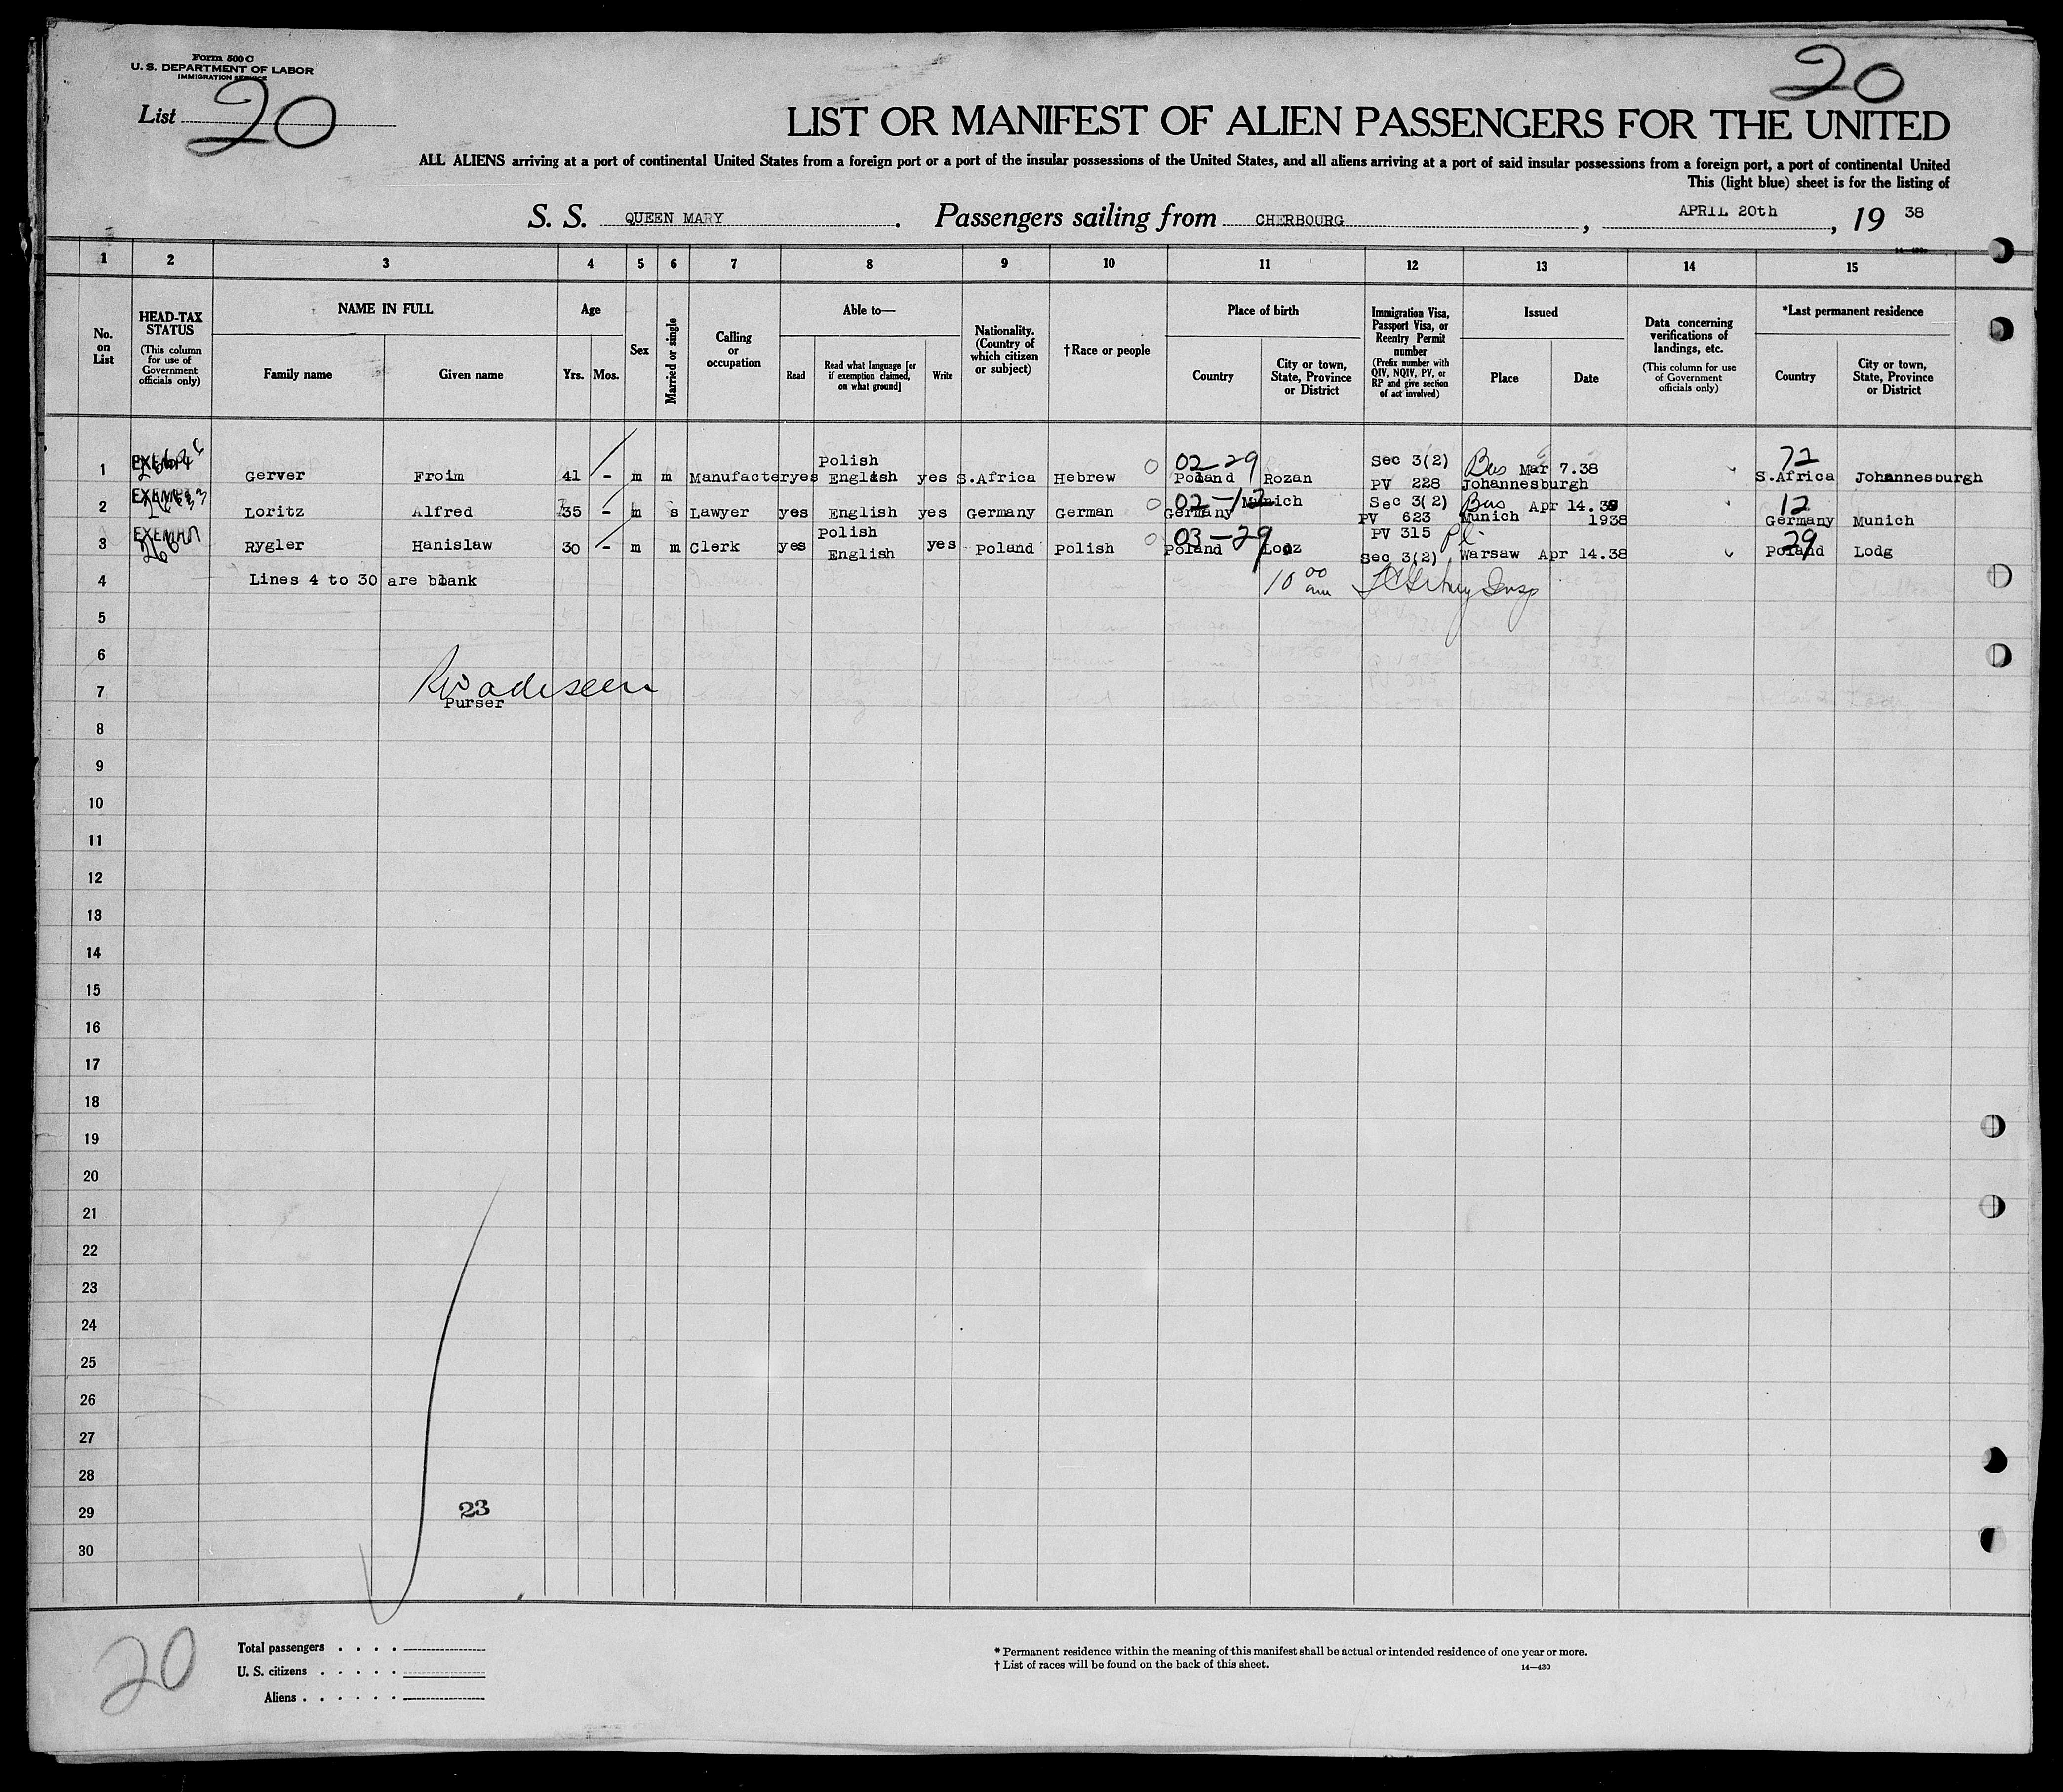 Form 500 C
U. S. DEPARTMENT OF LABOR
IMMIGRATION SERVICE
List 20
20
LIST OR MANIFEST OF ALIEN PASSENGERS FOR THE UNITED
ALL ALIENS arriving at a port of continental United States from a foreign port or a port of the insular possessions of the United States, and all aliens arriving at a port of said insular possessions from a foreign port, a port of continental United
This (light blue) sheet is for the listing of
S. S. QUEEN MARY. Passengers sailing from CHERBOURG, APRIL 20th, 19 38
1 2 3 4 5 6 7 8 9 10 11 12 13 14 15
No. on List
HEAD-TAX STATUS
(This column for use of Government officials only)
NAME IN FULL
Family name
Given name
Age
Yrs. Mos.
Sex
Married or single
Calling or occupation
Able to—
Read
Read what language [or if exemption claimed, on what ground]
Write
Nationality. (Country of which citizen or subject)
†Race or people
Place of birth
Country
City or town, State, Province or District
Immigration Visa, Passport Visa, or Reentry Permit number
(Prefix number with QIV, NQIV, PV, or RP and give section of act involved)
Issued
Place
Date
Data concerning verifications of landings, etc.
(This column for use of Government officials only)
*Last permanent residence
Country
City or town, State, Province or District
1 EXEMPT Gerver Froim 41 - m m Manufacter yes Polish English yes S.Africa Hebrew 02-29 Poland Rozan Sec 3(2) PV 228 Bus Mar 7.38 Johannesburgh 72 S.Africa Johannesburgh
2 EXEMPT Loritz Alfred 35 - m s Lawyer yes English yes Germany German 02-12 Germany Munich Sec 3(2) PV 623 Bus Munich Apr 14.38 1938 12 Germany Munich
3 EXEMPT Rygler Hanislaw 30 - m m Clerk yes Polish English yes Poland Polish 03-29 Poland Looz PV 315 Sec 3(2) Pl Warsaw Apr 14.38 29 Poland Lodg
4 Lines 4 to 30 are blank 10 00 am
5
6
7
Purser
8
9
10
11
12
13
14
15
16
17
18
19
20
21
22
23
24
25
26
27
28
29 23
30
20
Total passengers . . . .
U. S. citizens . . . . .
Aliens . . . . . .
* Permanent residence within the meaning of this manifest shall be actual or intended residence of one year or more.
† List of races will be found on the back of this sheet.
14—430